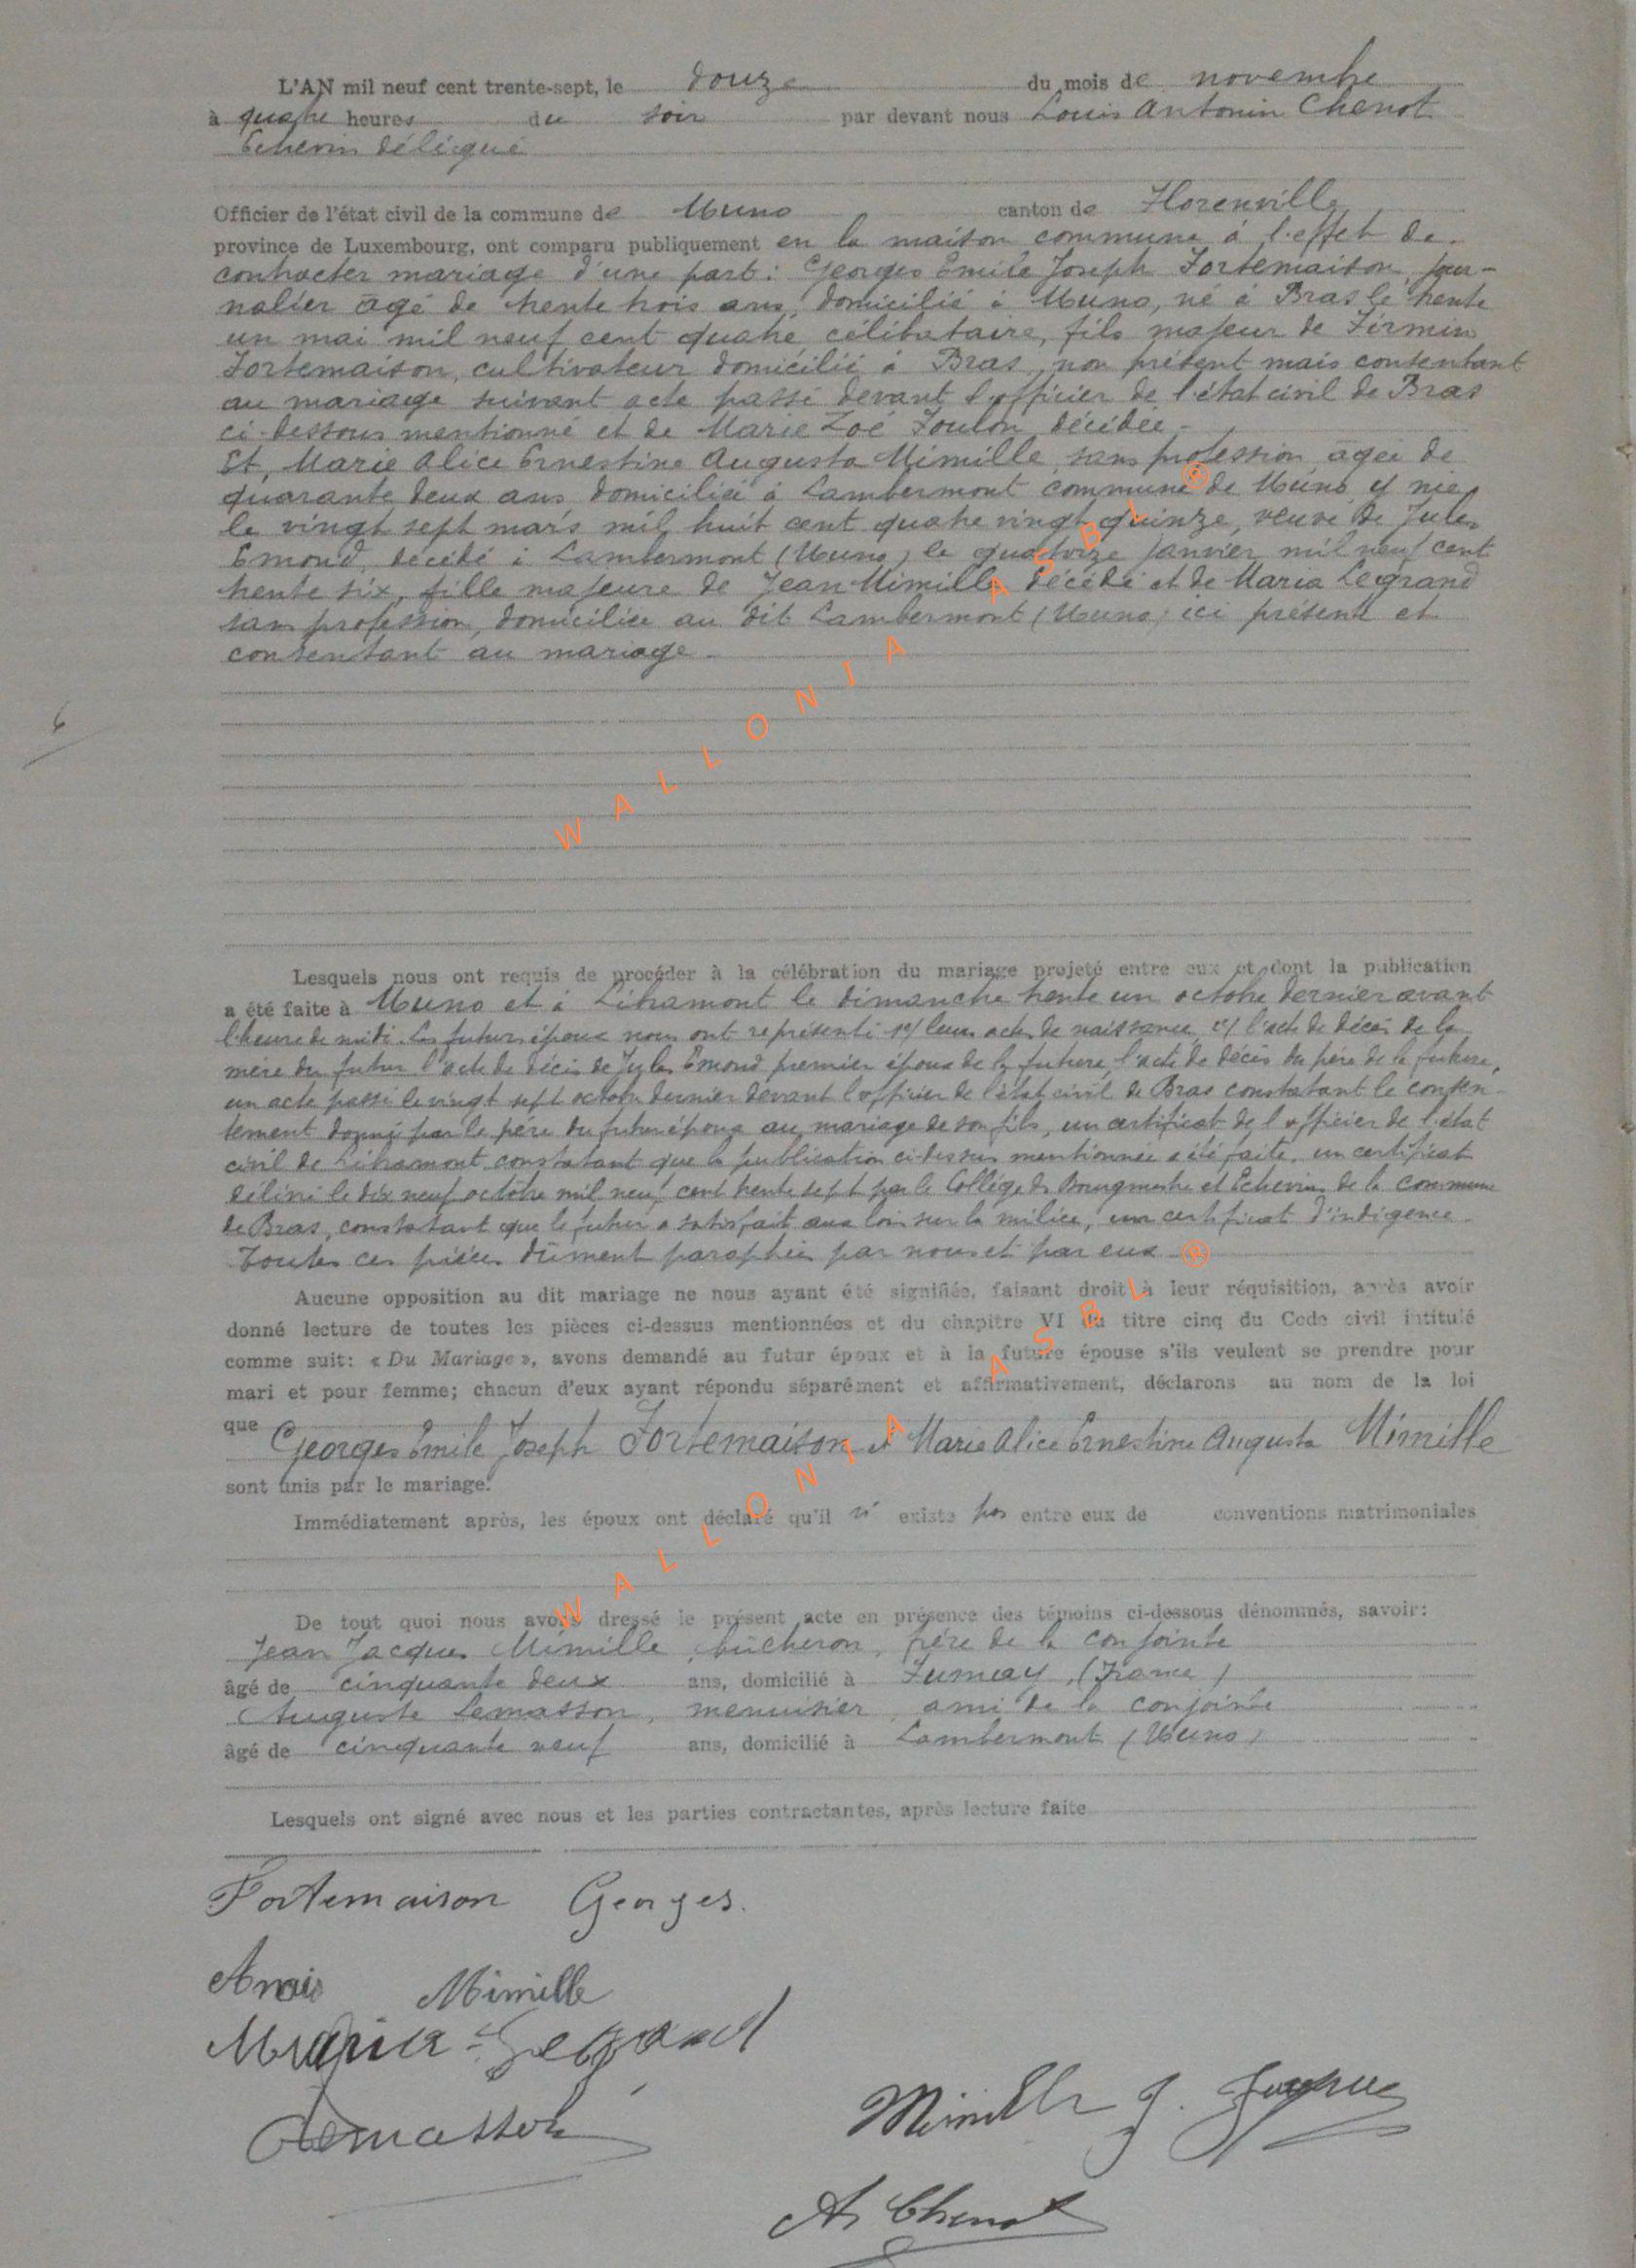 L'AN mil neuf cent trente-sept, le douze du mois de novembre
à quatre heures du soir par devant nous Louis Antonin Chenot
Echevin délégué
Officier de l'état civil de la commune de Muno canton de Florenville
province de Luxembourg, ont comparu publiquement en la maison commune à l'effet de
contracter mariage d'une part: Georges Emile Joseph Fortemaison, jour-
nalier âgé de trente trois ans, domicilié à Muno, né à Bras le trente
un mai mil neuf cent quatre célibataire, fils majeur de Firmin
Fortemaison, cultivateur domicilié à Bras, non présent mais consentant
au mariage suivant acte passé devant l'officier de l'état civil de Bras
ci-dessous mentionné et de Marie Zoé Toulon, décédée.-
Et, Marie Alice Ernestine Augusta Mimille, sans profession, âgée de
quarante deux ans domiciliée à Lambermont commune de Muno y née
le vingt sept mars mil huit cent quatre vingt quinze, veuve de Jules
Emond, décédé à Lambermont (Muno) le quatorze janvier mil neuf cent
trente six, fille majeure de Jean Mimille décédé et de Maria Legrand
sans profession, domiciliée au dit Lambermont (Muno) ici présent et
consentant au mariage.-
6
Lesquels nous ont requis de procéder à la célébration du mariage projeté entre eux et dont la publication
a été faite à Muno et à Libramont le dimanche trente un octobre dernier avant
l'heure de midi. Les futurs époux nous ont représenté 1°/ leurs actes de naissance, 2°/ l'acte de décès de la
mère du futur l'acte de décès de Jules Emond premier époux de la future, l'acte de décès du père de la future,
un acte passé le vingt sept octobre dernier devant l'officier de l'état civil de Bras constatant le consen-
tement donné par le père du futur époux au mariage de son fils, un certificat de l'officier de l'état
civil de Libramont constatant que la publication ci-dessus mentionnée a été faite, un certificat
délivré le dix neuf octobre mil neuf cent trente sept par le Collège des Bourgmestre et Echevins de la commune
de Bras, constatant que le futur a satisfait aux lois sur la milice, un certificat d'indigence.
Toutes ces pièces dûment paraphées par nous et par eux
Aucune opposition au dit mariage ne nous ayant été signifiée, faisant droit à leur réquisition, après avoir
donné lecture de toutes les pièces ci-dessus mentionnées et du chapitre VI du titre cinq du Code civil intitulé
comme suit: « Du Mariage », avons demandé au futur époux et à la future épouse s'ils veulent se prendre pour
mari et pour femme; chacun d'eux ayant répondu séparément et affirmativement, déclarons au nom de la loi
que Georges Emile Joseph Fortemaison et Marie Alice Ernestine Augusta Mimille
sont unis par le mariage.
Immédiatement après, les époux ont déclaré qu'il n' existe pas entre eux de conventions matrimoniales
De tout quoi nous avons dressé le présent acte en présence des témoins ci-dessous dénommés, savoir:
Jean Jacques Mimille, bûcheron, frère de la conjointe
âgé de cinquante deux ans, domicilié à Fumay, (France)
Auguste Lemasson, menuisier, ami de la conjointe
âgé de cinquante neuf ans, domicilié à Lambermont (Muno)
Lesquels ont signé avec nous et les parties contractantes, après lecture faite
Fortemaison Georges.
Mimille
Maria Legrand
Lemasson
Mimille J. Jacques
A. Chenot
WALLONIA ASBL ®
WALLONIA ASBL ®